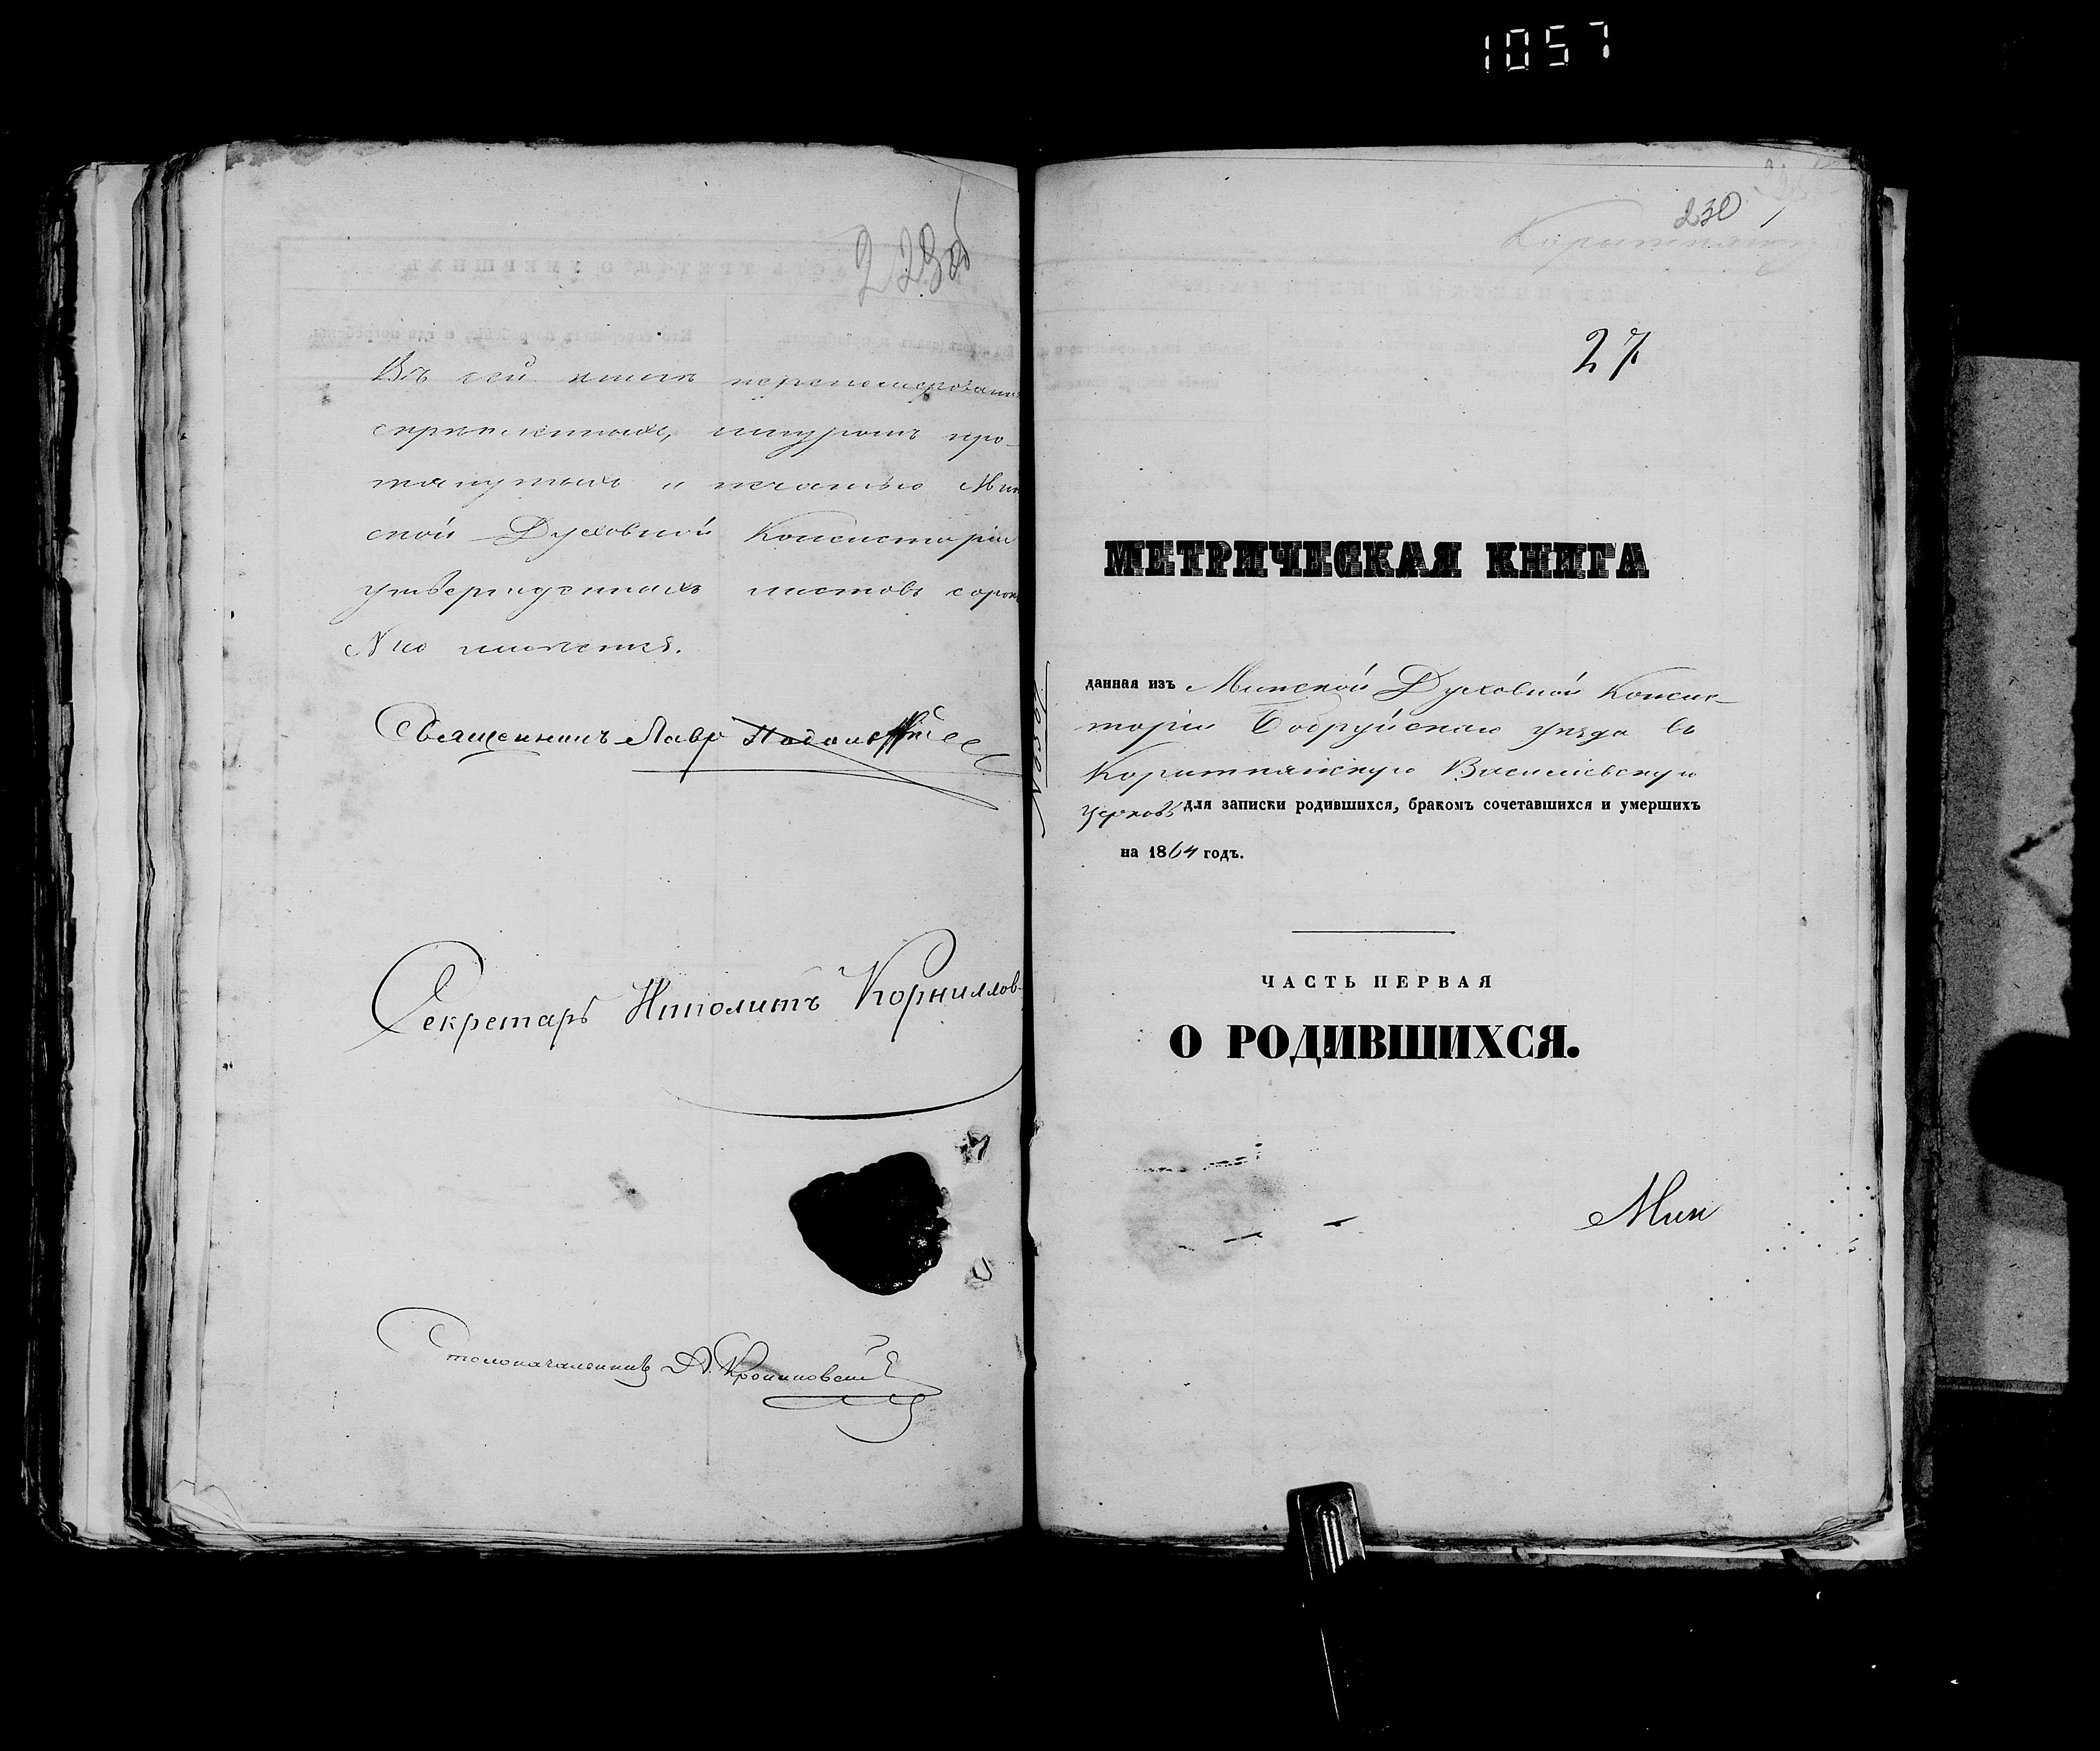 1057
229 об
Въ сей книгѣ перенумерованн
скрѣпленныхъ, шнуромъ про-
тянутыхъ и печатью Мин
ской Духовной Консисторіи
утвержденныхъ листовъ сорокъ
Священникъ Лавр
Секретарь Ипполитъ Корниллов
Столоначальникъ
230
1
27
МЕТРИЧЕСКАЯ КНИГА
данная изъ Минской Духовной Консис-
торіи Бобруйскаго уѣзда въ
Коритнянскую Васильевскую
церковь для записки родившихся, бракомъ сочетавшихся и умершихъ
на 1864 годъ.
ЧАСТЬ ПЕРВАЯ
О РОДИВШИХСЯ.
Мин